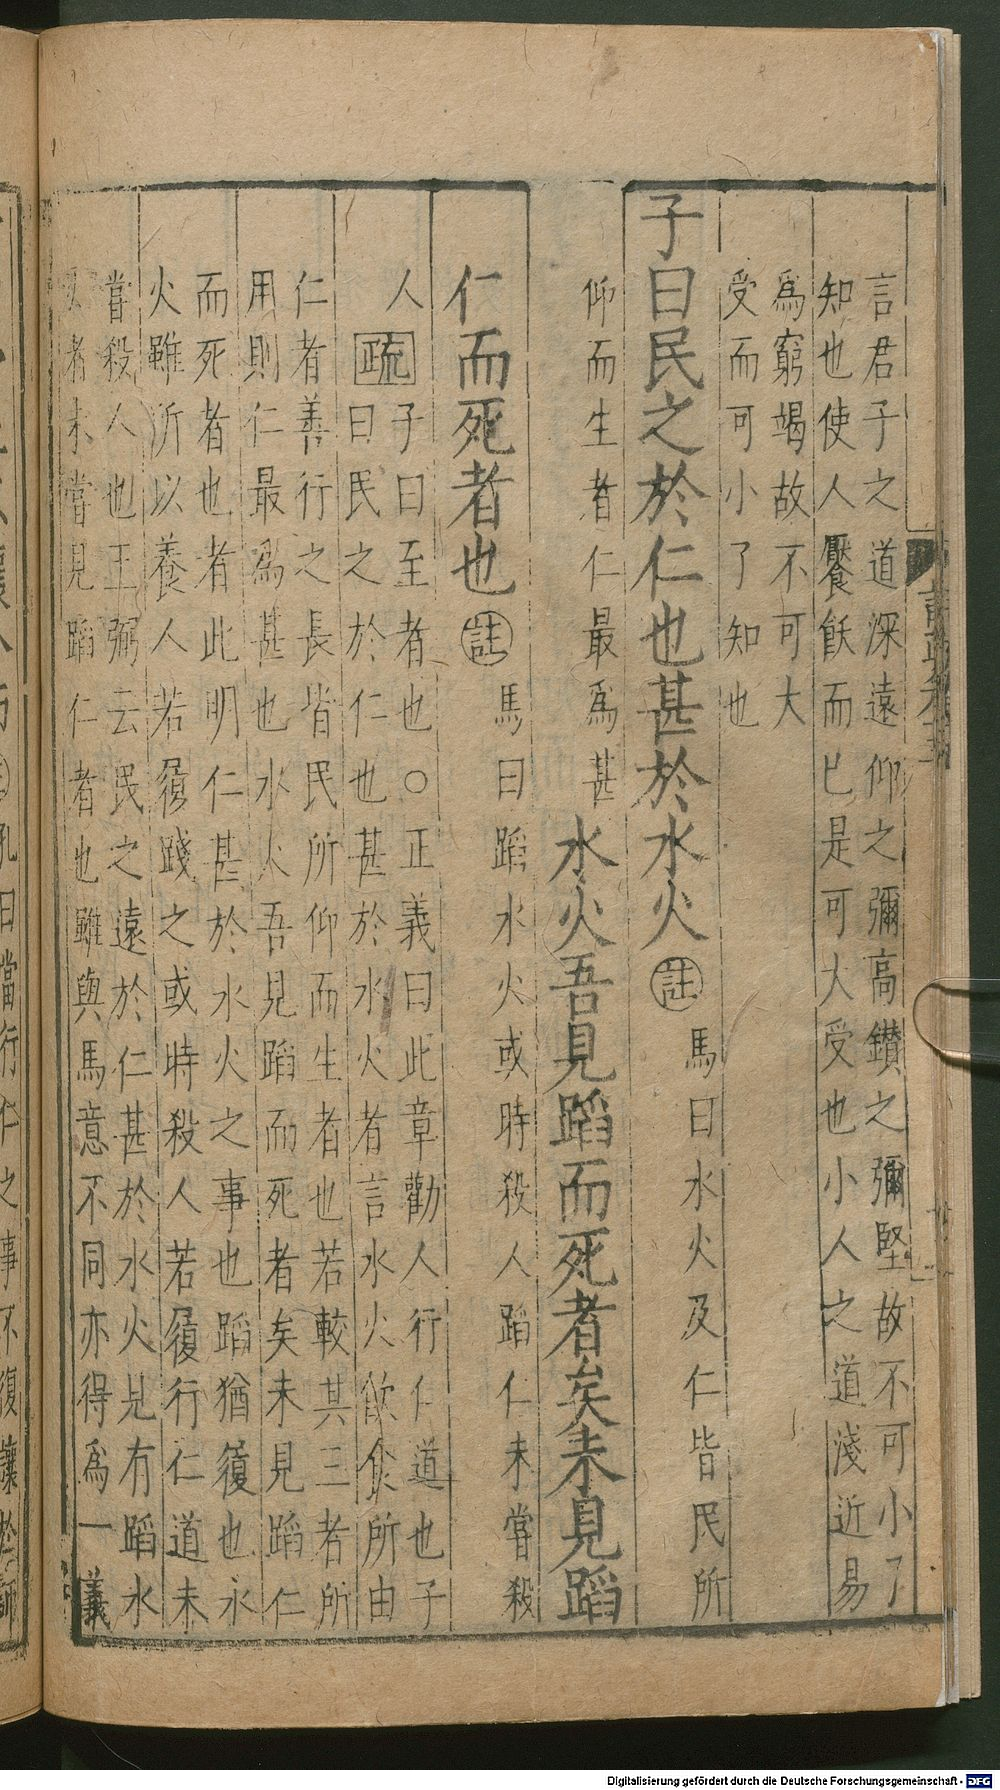 言君子之道深遠仰之彌高鑚之彌堅故不可小了
知也使人饜飫而已是可大受也小人之道淺近易
爲窮竭故不可大
受而可小了知也
子曰民之於仁也甚於水火
註
馬曰水火及仁皆民所
仰而生者仁最爲甚
水火吾見蹈而死者矣未見蹈
仁而死者也
註
馬曰蹈水火或時殺人蹈仁未嘗殺
人
疏
子曰至者也○正義曰此章勸人行仁道也子
曰民之於仁也甚於水火者言水火飲食所由
仁者善行之長皆民所仰而生者也若較其三者所
用則仁最爲甚也水火吾見蹈而死者矣未見蹈仁
而死者也者此明仁甚於水火之事也蹈猶履也水
火雖所以養人若履踐之或時殺人若履行仁道未
嘗殺人也王弼云民之遠於仁甚於水火見有蹈水
火者未嘗見蹈仁者也雖與馬意不同亦得爲一義
孔曰當行仁之事不復讓於師
Digitalisierung gefördert durch die Deutsche Forschungsgemeinschaft - DFG